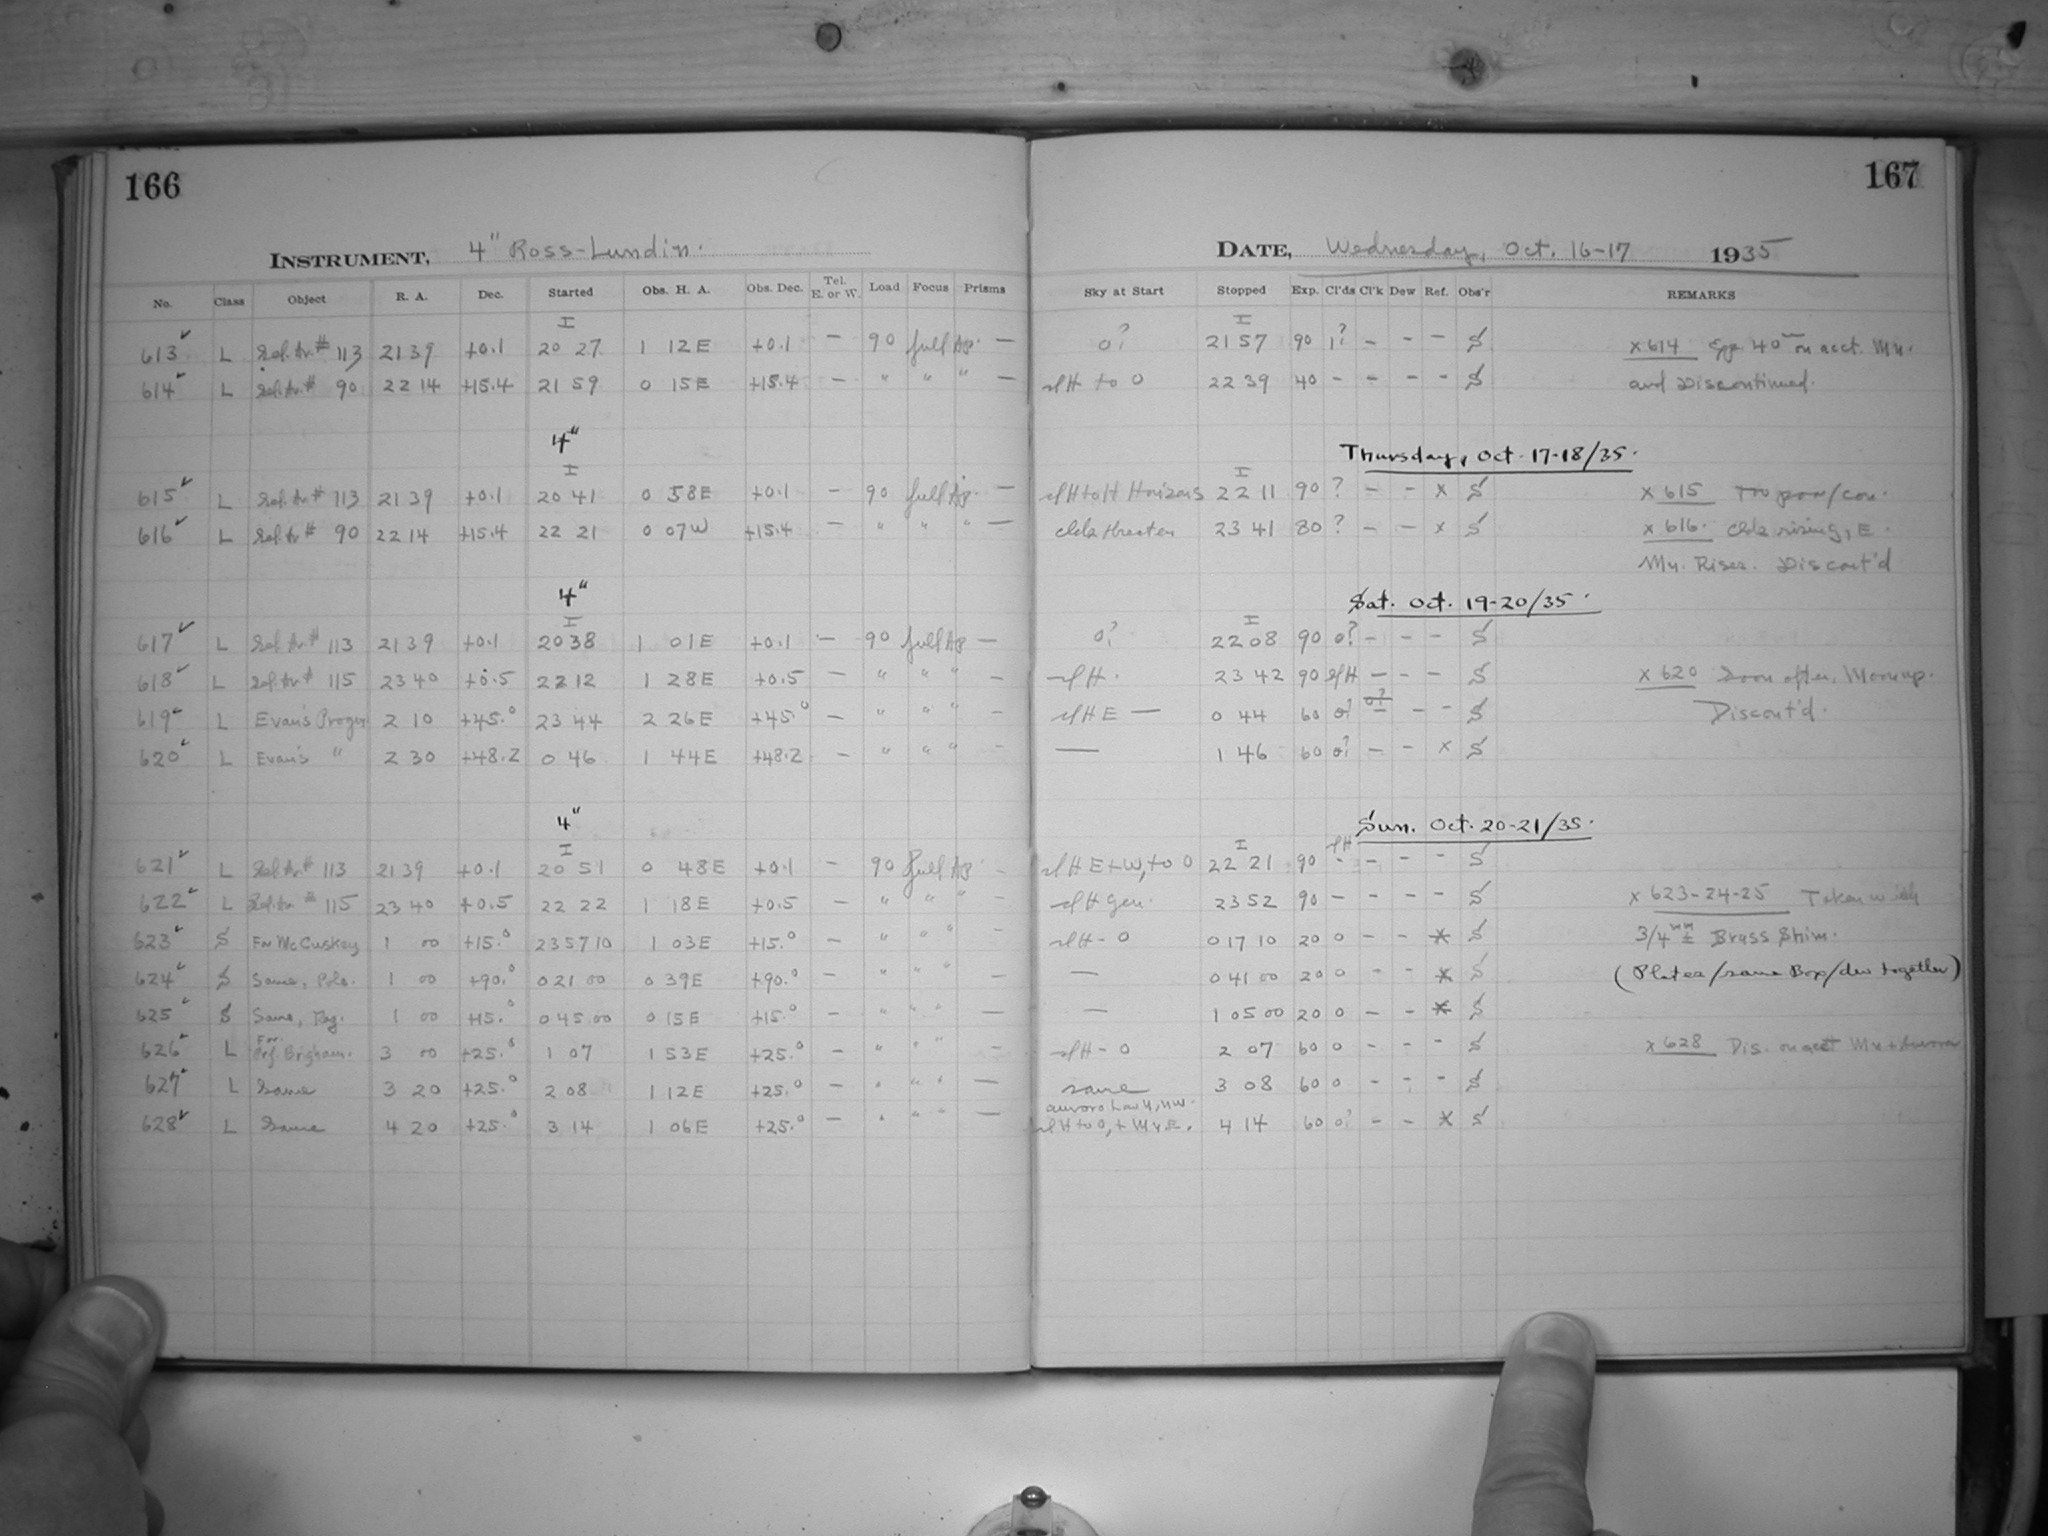 166
INSTRUMENT, 4" Ross-Lundin.
No. Class Object R. A. Dec. Started Obs. H. A. Obs. Dec. Tel. E. or W. Load Focus Prisms
I
613 ✓ L Sel. Ar. # 113 21 39 +0.1 20 27 1 12 E +0.1 — 90 full Ap. —
614 ✓ L Sel. Ar. # 90 22 14 +15.4 21 59 0 15 E +15.4 — " " " —
4"
I
615 ✓ L Sel. Ar. # 113 21 39 +0.1 20 41 0 58 E +0.1 — 90 full Ap. —
616 ✓ L Sel. Ar. # 90 22 14 +15.4 22 21 0 07 W +15.4 — " " " —
4"
I
617 ✓ L Sel. Ar. # 113 21 39 +0.1 20 38 1 01 E +0.1 — 90 full Ap —
618 ✓ L Sel. Ar. # 115 23 40 +0.5 22 12 1 28 E +0.5 — " " " —
619 ✓ L Evan's Progr. 2 10 +45.° 23 44 2 26 E +45.° — " " " —
620 ✓ L Evan's " 2 30 +48.2 0 46 1 44 E +48.2 — " " " —
4"
I
621 ✓ L Sel. Ar. # 113 21 39 +0.1 20 51 0 48 E +0.1 — 90 full Ap —
622 ✓ L Sel. Ar. # 115 23 40 +0.5 22 22 1 18 E +0.5 — " " " —
623 ✓ S For McCuskey 1 00 +15.° 23 57 10 1 03 E +15.° — " " " —
624 ✓ S Same, Pole. 1 00 +90.° 0 21 00 0 39 E +90.° — " " " —
625 ✓ S Same, 1 00 +15.° 0 45 00 0 15 E +15.° — " " " —
626 ✓ L For Prf. Brigham. 3 00 +25.° 1 07 1 53 E +25.° — " " " —
627 ✓ L Same 3 20 +25.° 2 08 1 12 E +25.° — " " " —
628 ✓ L Same 4 20 +25.° 3 14 1 06 E +25.° — " " " —
167
DATE, Wednesday, Oct. 16-17 1935
Sky at Start Stopped Exp. Cl'ds Cl'k Dew Ref. Obs'r REMARKS
I
0? 21 57 90 1? - - - S x 614 40 m on acct. Mn.
slH to 0 22 39 40 - - - - S and Discontinued.
Thursday, Oct. 17-18/35.
I
slH to H Horizons 22 11 90 ? - - x S x 615
clds threaten 23 41 80 ? - - x S x 616. clds rising, E.
Mn. Rises. Discont'd
Sat. Oct. 19-20/35.
I
0? 22 08 90 0? - - - S
slH. 23 42 90 slH - - - S x 620 Soon after, Moon up.
slH E — 0 44 60 0? 0? - - - S Discont'd.
— 1 46 60 0? - - x S
Sun. Oct. 20-21/35.
I slH
slH E + W, to 0 22 21 90 - - - - S
slH gen. 23 52 90 - - - - S x 623-24-25 Taken with
slH - 0 0 17 10 20 0 - - * S 3/4 mm ± Brass Shim.
— 0 41 00 20 0 * S (Plates/same Box/dev together)
— 1 05 00 20 0 - - * S
slH - 0 2 07 60 0 - - - S x 628 Dis. on acct Mn + Aurora
same 3 08 60 0 - - - S
aurora Low N, NW.
slH to 0, + Mn E. 4 14 60 0? - - * S